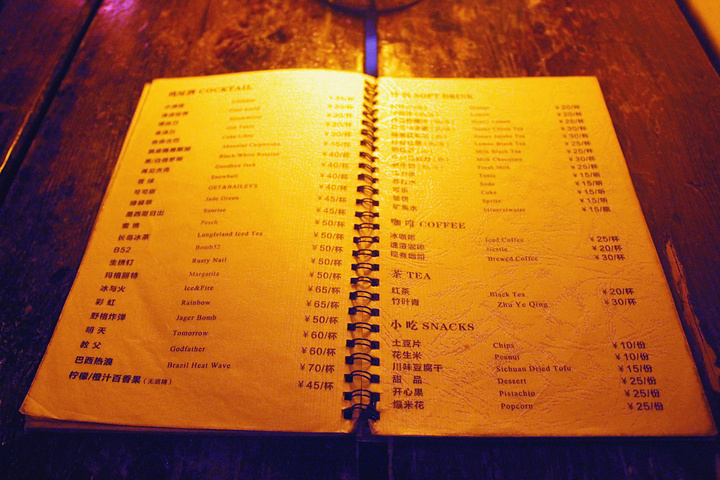 鸡尾酒 COCKTAIL
Gin Tonic
Cuba Libre
Absolut Caipiroska ¥40/杯
Black/White Russian ¥40/杯
Goodbye Jack ¥40/杯
雪球 Snowball ¥40/杯
可可甜 GET&BAILEY'S ¥40/杯
绿翡翠 Jade Green ¥45/杯
墨西哥日出 Sunrise ¥45/杯
蜜桃 Peach ¥50/杯
长岛冰茶 Longleland Iced Tea ¥50/杯
B52 Bomb52 ¥50/杯
生锈钉 Rusty Nail ¥50/杯
玛格丽特 Margarita ¥50/杯
冰与火 Ice&Fire ¥65/杯
彩虹 Rainbow ¥65/杯
野格炸弹 Jager Bomb ¥50/杯
明天 Tomorrow ¥60/杯
教父 Godfather ¥60/杯
巴西热浪 Brazil Heat Wave ¥70/杯
柠檬/橙汁百香果(无酒精) ¥45/杯
SOFT DRINK
Mango ¥20/杯
Lemon ¥25/杯
Honey Lemon ¥25/杯
Honey Citron Tea ¥30/杯
Honey Jujube Tea ¥30/杯
Lemon Black Tea ¥25/杯
Milk Black Tea ¥25/杯
Milk Chocolate ¥30/杯
Fresh Milk ¥25/杯
Tonic ¥15/瓶
苏打水 Soda ¥15/瓶
可乐 Coke ¥15/瓶
雪碧 Sprite ¥15/瓶
矿泉水 Mineralwater ¥15/瓶
咖啡 COFFEE
冰咖啡 Iced Coffee ¥25/杯
速溶咖啡 Nestle ¥20/杯
现煮咖啡 Brewed Coffee ¥30/杯
茶 TEA
红茶 Black Tea ¥20/杯
竹叶青 Zhu Ye Qing ¥30/杯
小吃 SNACKS
土豆片 Chips ¥10/份
花生米 Peanut ¥10/份
川味豆腐干 Sichuan Dried Tofu ¥15/份
甜品 Dessert ¥25/份
开心果 Pistachio ¥25/份
爆米花 Popcorn ¥25/份